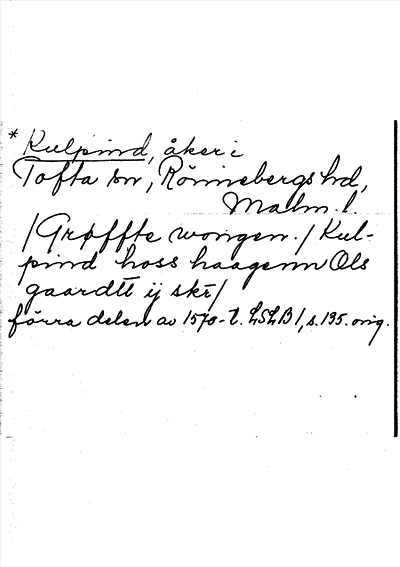 * Kulpind, åker i
Tofta sn, Rönnebergs hd,
Malm. l.
/Grøffte wongen./ Kul-
pind hoss haagenn Ols
gaardtt ij skr/
förra delen av 1570-t. LSLB 1, s. 195. orig.